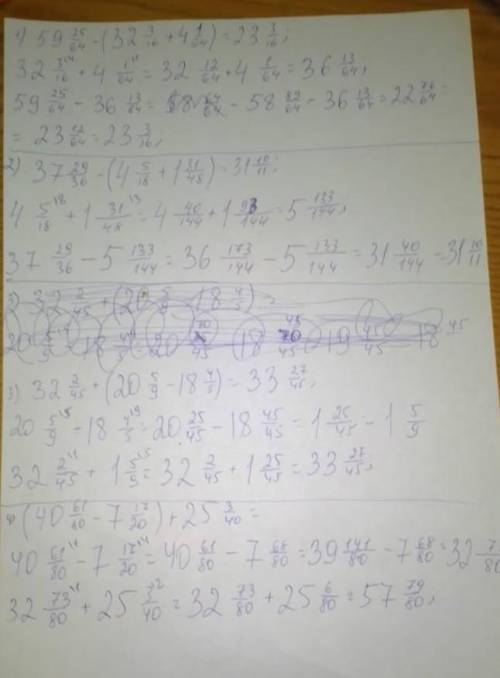 1) 59 25/64 - (32 3/16 + 4 1/64) = 23 3/16;
32 3/16 + 4 1/64 = 32 12/64 + 4 1/64 = 36 13/64;
59 25/64 - 36 13/64 = 58 89/64 - 36 13/64 = 22 76/64 =
= 23 12/64 = 23 3/16;
2) 37 29/36 - (4 5/18 + 1 31/48) = 31 10/11;
4 5/18 + 1 31/48 = 4 40/144 + 1 93/144 = 5 133/144;
37 29/36 - 5 133/144 = 36 173/144 - 5 133/144 = 31 40/144 = 31 10/11
3) 32 2/45 + (20 5/9 - 18 4/5) =
20 5/9 - 18
3) 32 2/45 + (20 5/9 - 18 4/5) = 33 27/45;
20 5/9 - 18 4/5 = 20 25/45 - 18 45/45 = 1 25/45 - 1 5/9
32 2/45 + 1 5/9 = 32 2/45 + 1 25/45 = 33 27/45;
4) (40 61/80 - 7 17/20) + 25 3/40 =
40 61/80 - 7 17/20 = 40 61/80 - 7 68/80 = 39 141/80 - 7 68/80 = 32
32 73/80 + 25 3/40 = 32 73/80 + 25 6/80 = 57 79/80;